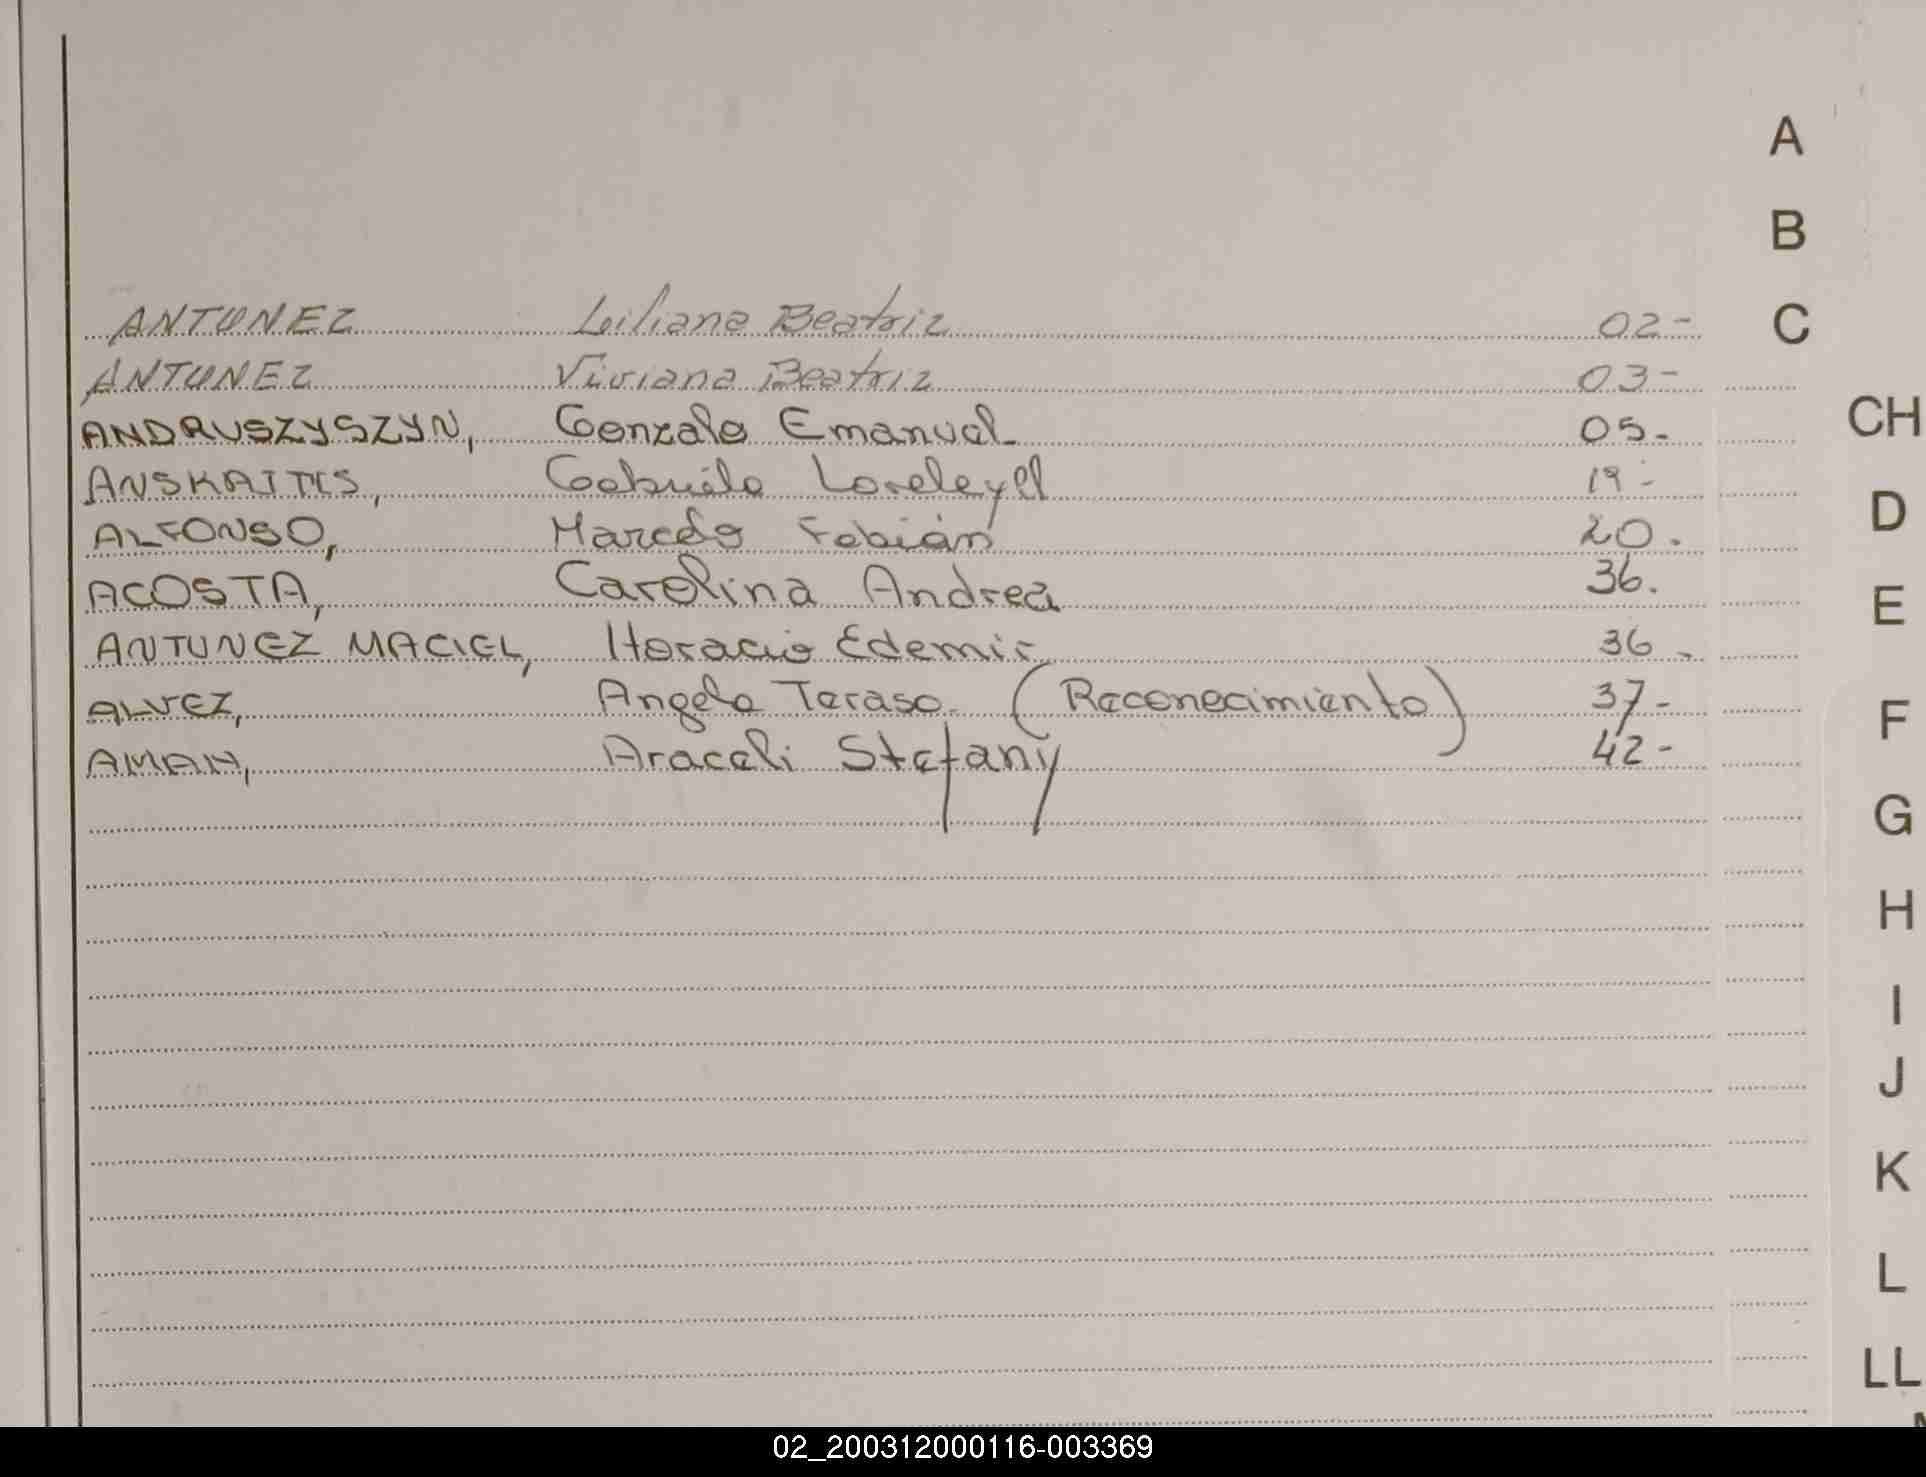 A
B
ANTUNEZ Liliana Beatriz 02- C
ANTUNEZ Viviana Beatriz 03-
ANDRUSZYSZYN, Gonzalo Emanuel- 05- CH
ANSKAITIS, Gabriela 19-
ALFONSO, Marcelo Fabián 20. D
ACOSTA, Carolina Andrea 36. E
ANTUNEZ MACIEL, Horacio Edemir 36-
ALVEZ, Angela Teresa- (Reconecimiento) 37- F
Araceli Stefany 42-
G
H
I
J
K
L
LL
02_200312000116-003369